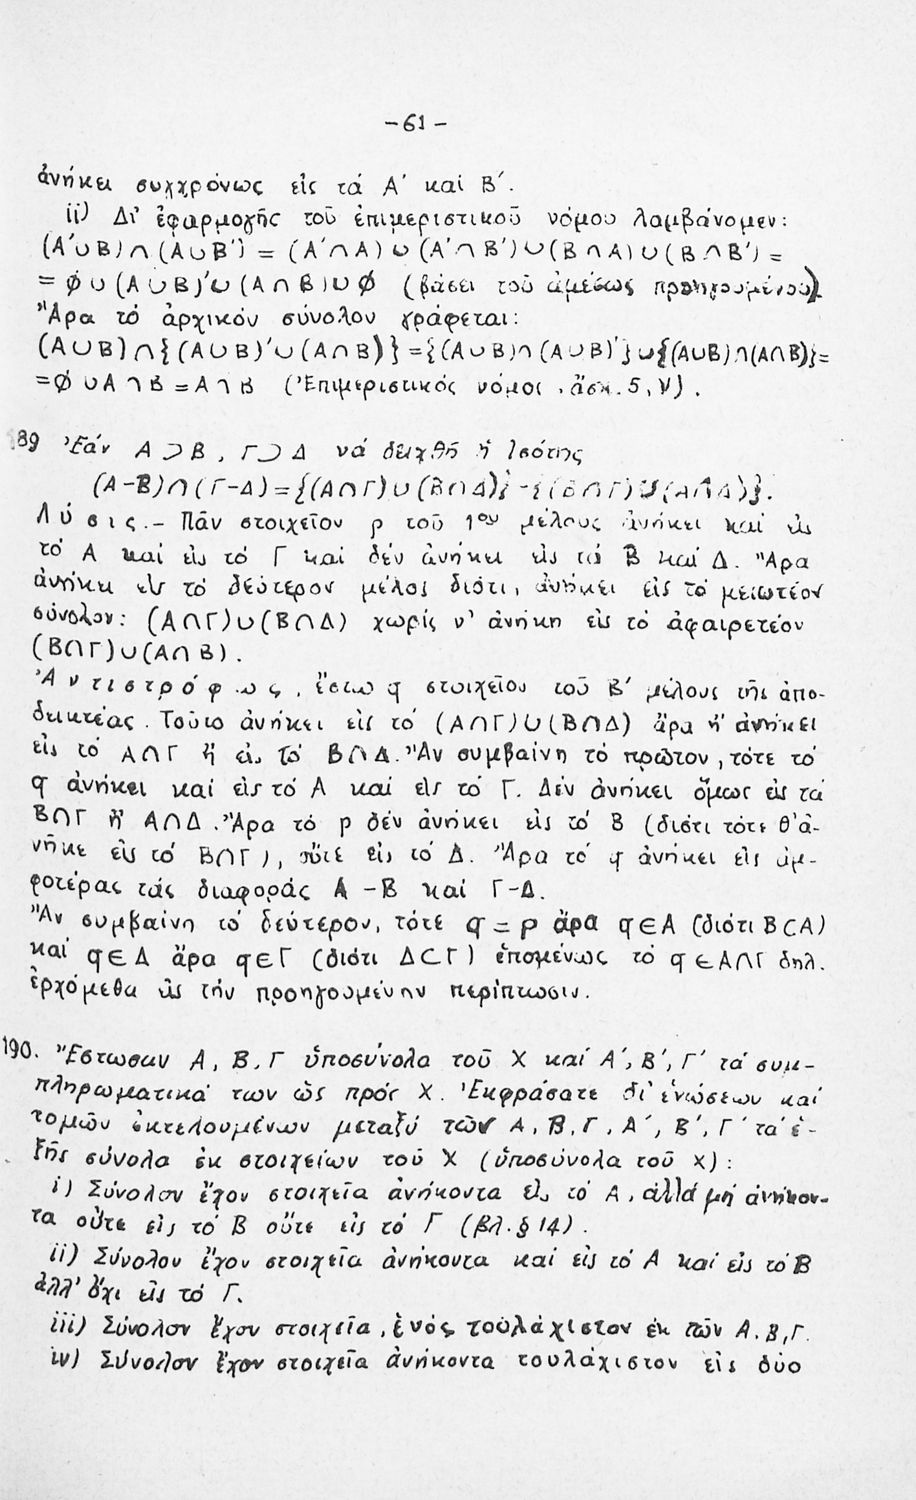 -61-
ἀνήκει συγχρόνως εἰς τά Α΄ καί Β΄.
ii) Δι' ἐφαρμογῆς τοῦ ἐπιμεριστικοῦ νόμου λαμβάνομεν:
(Α΄∪Β)∩(Α∪Β΄) = (Α΄∩Α)∪(Α΄∩Β΄)∪(Β∩Α)∪(Β∩Β΄) =
= ∅∪(Α∪Β)΄∪(Α∩Β)∪∅ (βάσει τοῦ ἀμέσως προηγουμένου).
Ἄρα τό ἀρχικόν σύνολον γράφεται:
(Α∪Β)∩{(Α∪Β)΄∪(Α∩Β)} = {(Α∪Β)∩(Α∪Β)΄}∪{(Α∪Β)∩(Α∩Β)}=
=∅∪Α∩Β=Α∩Β (Ἐπιμεριστικός νόμος, ἄσκ. 5, V).
189 Ἐάν Α⊃Β, Γ⊃Δ νά δειχθῆ ἡ ἰσότης
(Α-Β)∩(Γ-Δ)={(Α∩Γ)∪(Β∩Δ)}-{(Β∩Γ)∪(Α∩Δ)}.
Λύσις.- Πᾶν στοιχεῖον ρ τοῦ 1ου μέλους ἀνήκει καί εἰς
τό Α καί εἰς τό Γ καί δέν ἀνήκει εἰς τά Β καί Δ. Ἄρα
ἀνήκει εἰς τό δεύτερον μέλος διότι, ἀνήκει εἰς τό μειωτέον
σύνολον: (Α∩Γ)∪(Β∩Δ) χωρίς ν' ἀνήκη εἰς τό ἀφαιρετέον
(Β∩Γ)∪(Α∩Β).
Ἀντιστρόφως, ἔστω q στοιχεῖον τοῦ Β΄ μέλους τῆς ἀπο-
δεικτέας. Τοῦτο ἀνήκει εἰς τό (Α∩Γ)∪(Β∩Δ) ἄρα ἤ ἀνήκει
εἰς τό Α∩Γ ἤ εἰς τό Β∩Δ. Ἄν συμβαίνη τό πρῶτον, τότε τό
q ἀνήκει καί εἰς τό Α καί εἰς τό Γ. Δέν ἀνήκει ὅμως εἰς τά
Β∩Γ ἤ Α∩Δ. Ἄρα τό ρ δέν ἀνήκει εἰς τό Β (διότι τότε θ' ἀ-
νῆκε εἰς τό Β∩Γ), οὔτε εἰς τό Δ. Ἄρα τό q ἀνήκει εἰς ἀμ-
φοτέρας τάς διαφοράς Α-Β καί Γ-Δ.
Ἄν συμβαίνη τό δεύτερον, τότε q=ρ ἄρα q∈Α (διότι Β⊂Α)
καί q∈Δ ἄρα q∈Γ (διότι Δ⊂Γ) ἑπομένως τό q∈Α∩Γ δηλ.
ἐρχόμεθα εἰς τήν προηγουμένην περίπτωσιν.
190. Ἔστωσαν Α, Β, Γ ὑποσύνολα τοῦ Χ καί Α΄, Β΄, Γ΄ τά συμ-
πληρωματικά των ὡς πρός Χ. Ἐκφράσατε δι' ἑνώσεων καί
τομῶν ἐκτελουμένων μεταξύ τῶν Α, Β, Γ, Α΄, Β΄, Γ΄ τά ἑ-
ξῆς σύνολα ἐκ στοιχείων τοῦ Χ (ὑποσύνολα τοῦ Χ):
i) Σύνολον ἔχον στοιχεῖα ἀνήκοντα εἰς τό Α, ἀλλά μή ἀνήκον-
τα οὔτε εἰς τό Β οὔτε εἰς τό Γ (βλ. § 14).
ii) Σύνολον ἔχον στοιχεῖα ἀνήκοντα καί εἰς τό Α καί εἰς τό Β
ἀλλ' ὄχι εἰς τό Γ.
iii) Σύνολον ἔχον στοιχεῖα, ἑνός τουλάχιστον ἐκ τῶν Α, Β, Γ.
iv) Σύνολον ἔχον στοιχεῖα ἀνήκοντα τουλάχιστον εἰς δύο